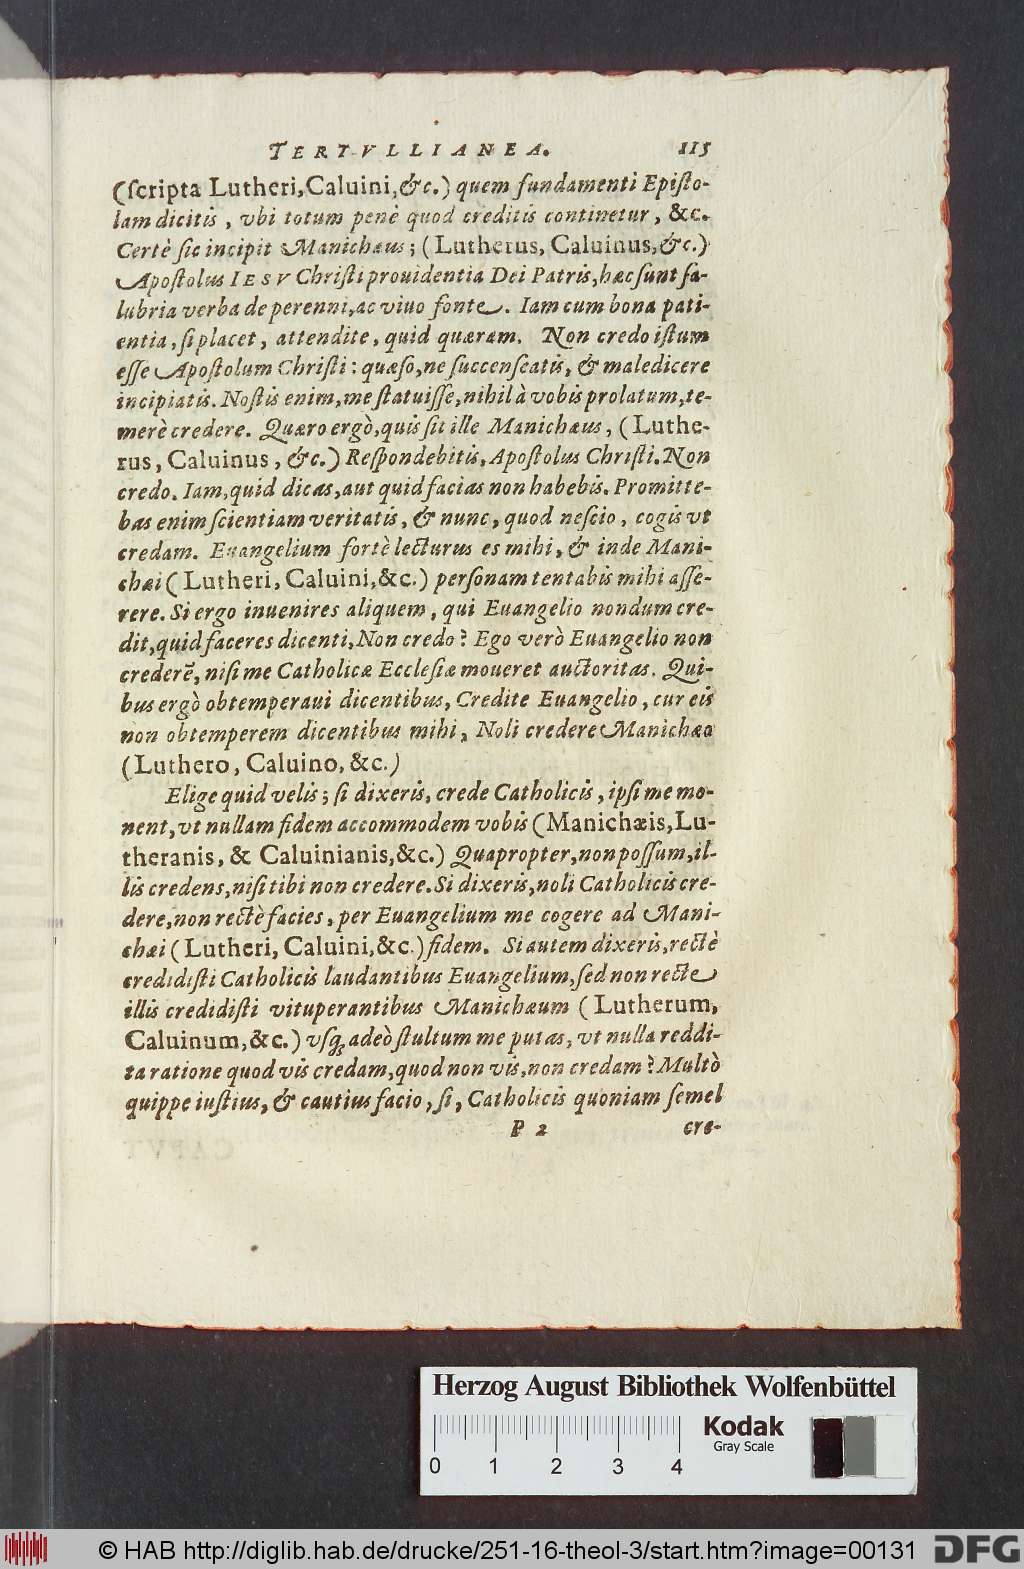 TERTVLLIANEA. 115
(ſcripta Lutheri, Caluini, &c.) quem fundamenti Epiſto-
lam dicitis, vbi totum penè quod creditis continetur, &c.
Certè ſic incipit Manichæus; (Lutherus, Caluinus, &c.)
Apoſtolus IESV Chriſti prouidentia Dei Patris, hæc ſunt ſa-
lubria verba de perenni, ac viuo fonte. Iam cum bona pati-
entia, ſi placet, attendite, quid quæram. Non credo iſtum
eſſe Apoſtolum Chriſti: quæſo, ne ſuccenſeatis, & maledicere
incipiatis. Noſtis enim, me ſtatuiſſe, nihil à vobis prolatum, te-
merè credere. Quæro ergò, quis ſit ille Manichæus, (Luthe-
rus, Caluinus, &c.) Reſpondebitis, Apoſtolus Chriſti. Non
credo. Iam, quid dicas, aut quid facias non habebis. Promitte-
bas enim ſcientiam veritatis, & nunc, quod neſcio, cogis vt
credam. Euangelium fortè lecturus es mihi, & inde Mani-
chæi (Lutheri, Caluini, &c.) perſonam tentabis mihi aſſe-
rere. Si ergo inuenires aliquem, qui Euangelio nondum cre-
dit, quid faceres dicenti, Non credo? Ego verò Euangelio non
crederē, niſi me Catholicæ Eccleſiæ moueret auctoritas. Qui-
bus ergò obtemperaui dicentibus, Credite Euangelio, cur eis
non obtemperem dicentibus mihi, Noli credere Manichæo
(Luthero, Caluino, &c.)
Elige quid velis; ſi dixeris, crede Catholicis, ipſi me mo-
nent, vt nullam fidem accommodem vobis (Manichæis, Lu-
theranis, & Caluinianis, &c.) Quapropter, non poſſum, il-
lis credens, niſi tibi non credere. Si dixeris, noli Catholicis cre-
dere, non rectè facies, per Euangelium me cogere ad Mani-
chæi (Lutheri, Caluini, &c.) fidem. Si autem dixeris, rectè
credidiſti Catholicis laudantibus Euangelium, ſed non recte
illis credidiſti vituperantibus Manichæum (Lutherum,
Caluinum, &c.) vſq; adeò ſtultum me putas, vt nulla reddi-
ta ratione quod vis credam, quod non vis, non credam? Multò
quippe iuſtius, & cautius facio, ſi, Catholicis quoniam ſemel
P 2 cre-
Herzog August Bibliothek Wolfenbüttel
Kodak
Gray Scale
0 1 2 3 4
© HAB http://diglib.hab.de/drucke/251-16-theol-3/start.htm?image=00131
DFG